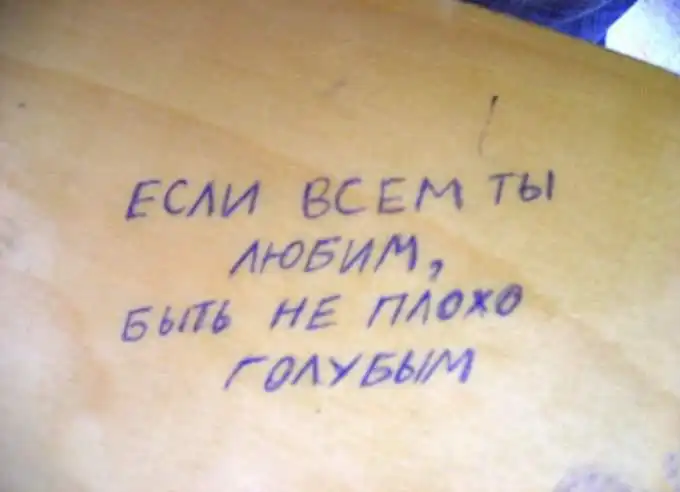 ЕСЛИ ВСЕМ ТЫ
ЛЮБИМ,
БЫТЬ НЕ ПЛОХО
ГОЛУБЫМ